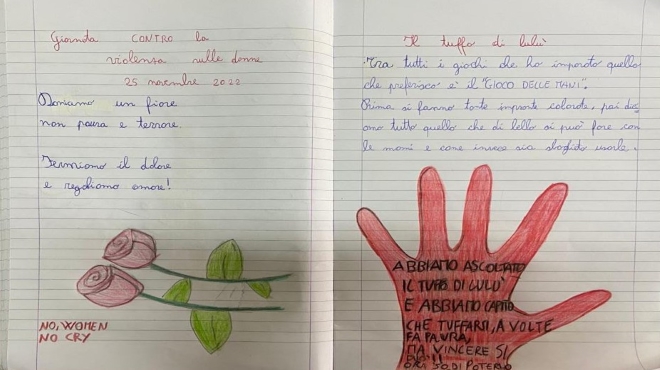 Giornata CONTRO la
violenza sulle donne
25 novembre 2022
Doniamo un fiore
non paura e terrore.
Fermiamo il dolore
e regaliamo amore!
NO, WOMEN
NO CRY
Il tuffo di Lulù
Tra tutti i giochi che ho imparato quello
che preferisco è il "GIOCO DELLE MANI".
Prima si fanno tante impronte colorate, poi dic
iamo tutto quello che di bello si può fare con
le mani e come invece sia sbagliato usarle.
ABBIAMO ASCOLTATO
IL TUFFO DI LULÙ
E ABBIAMO CAPITO
CHE TUFFARSI, A VOLTE
FA PAURA,
MA VINCERE SI
DI POTERLO